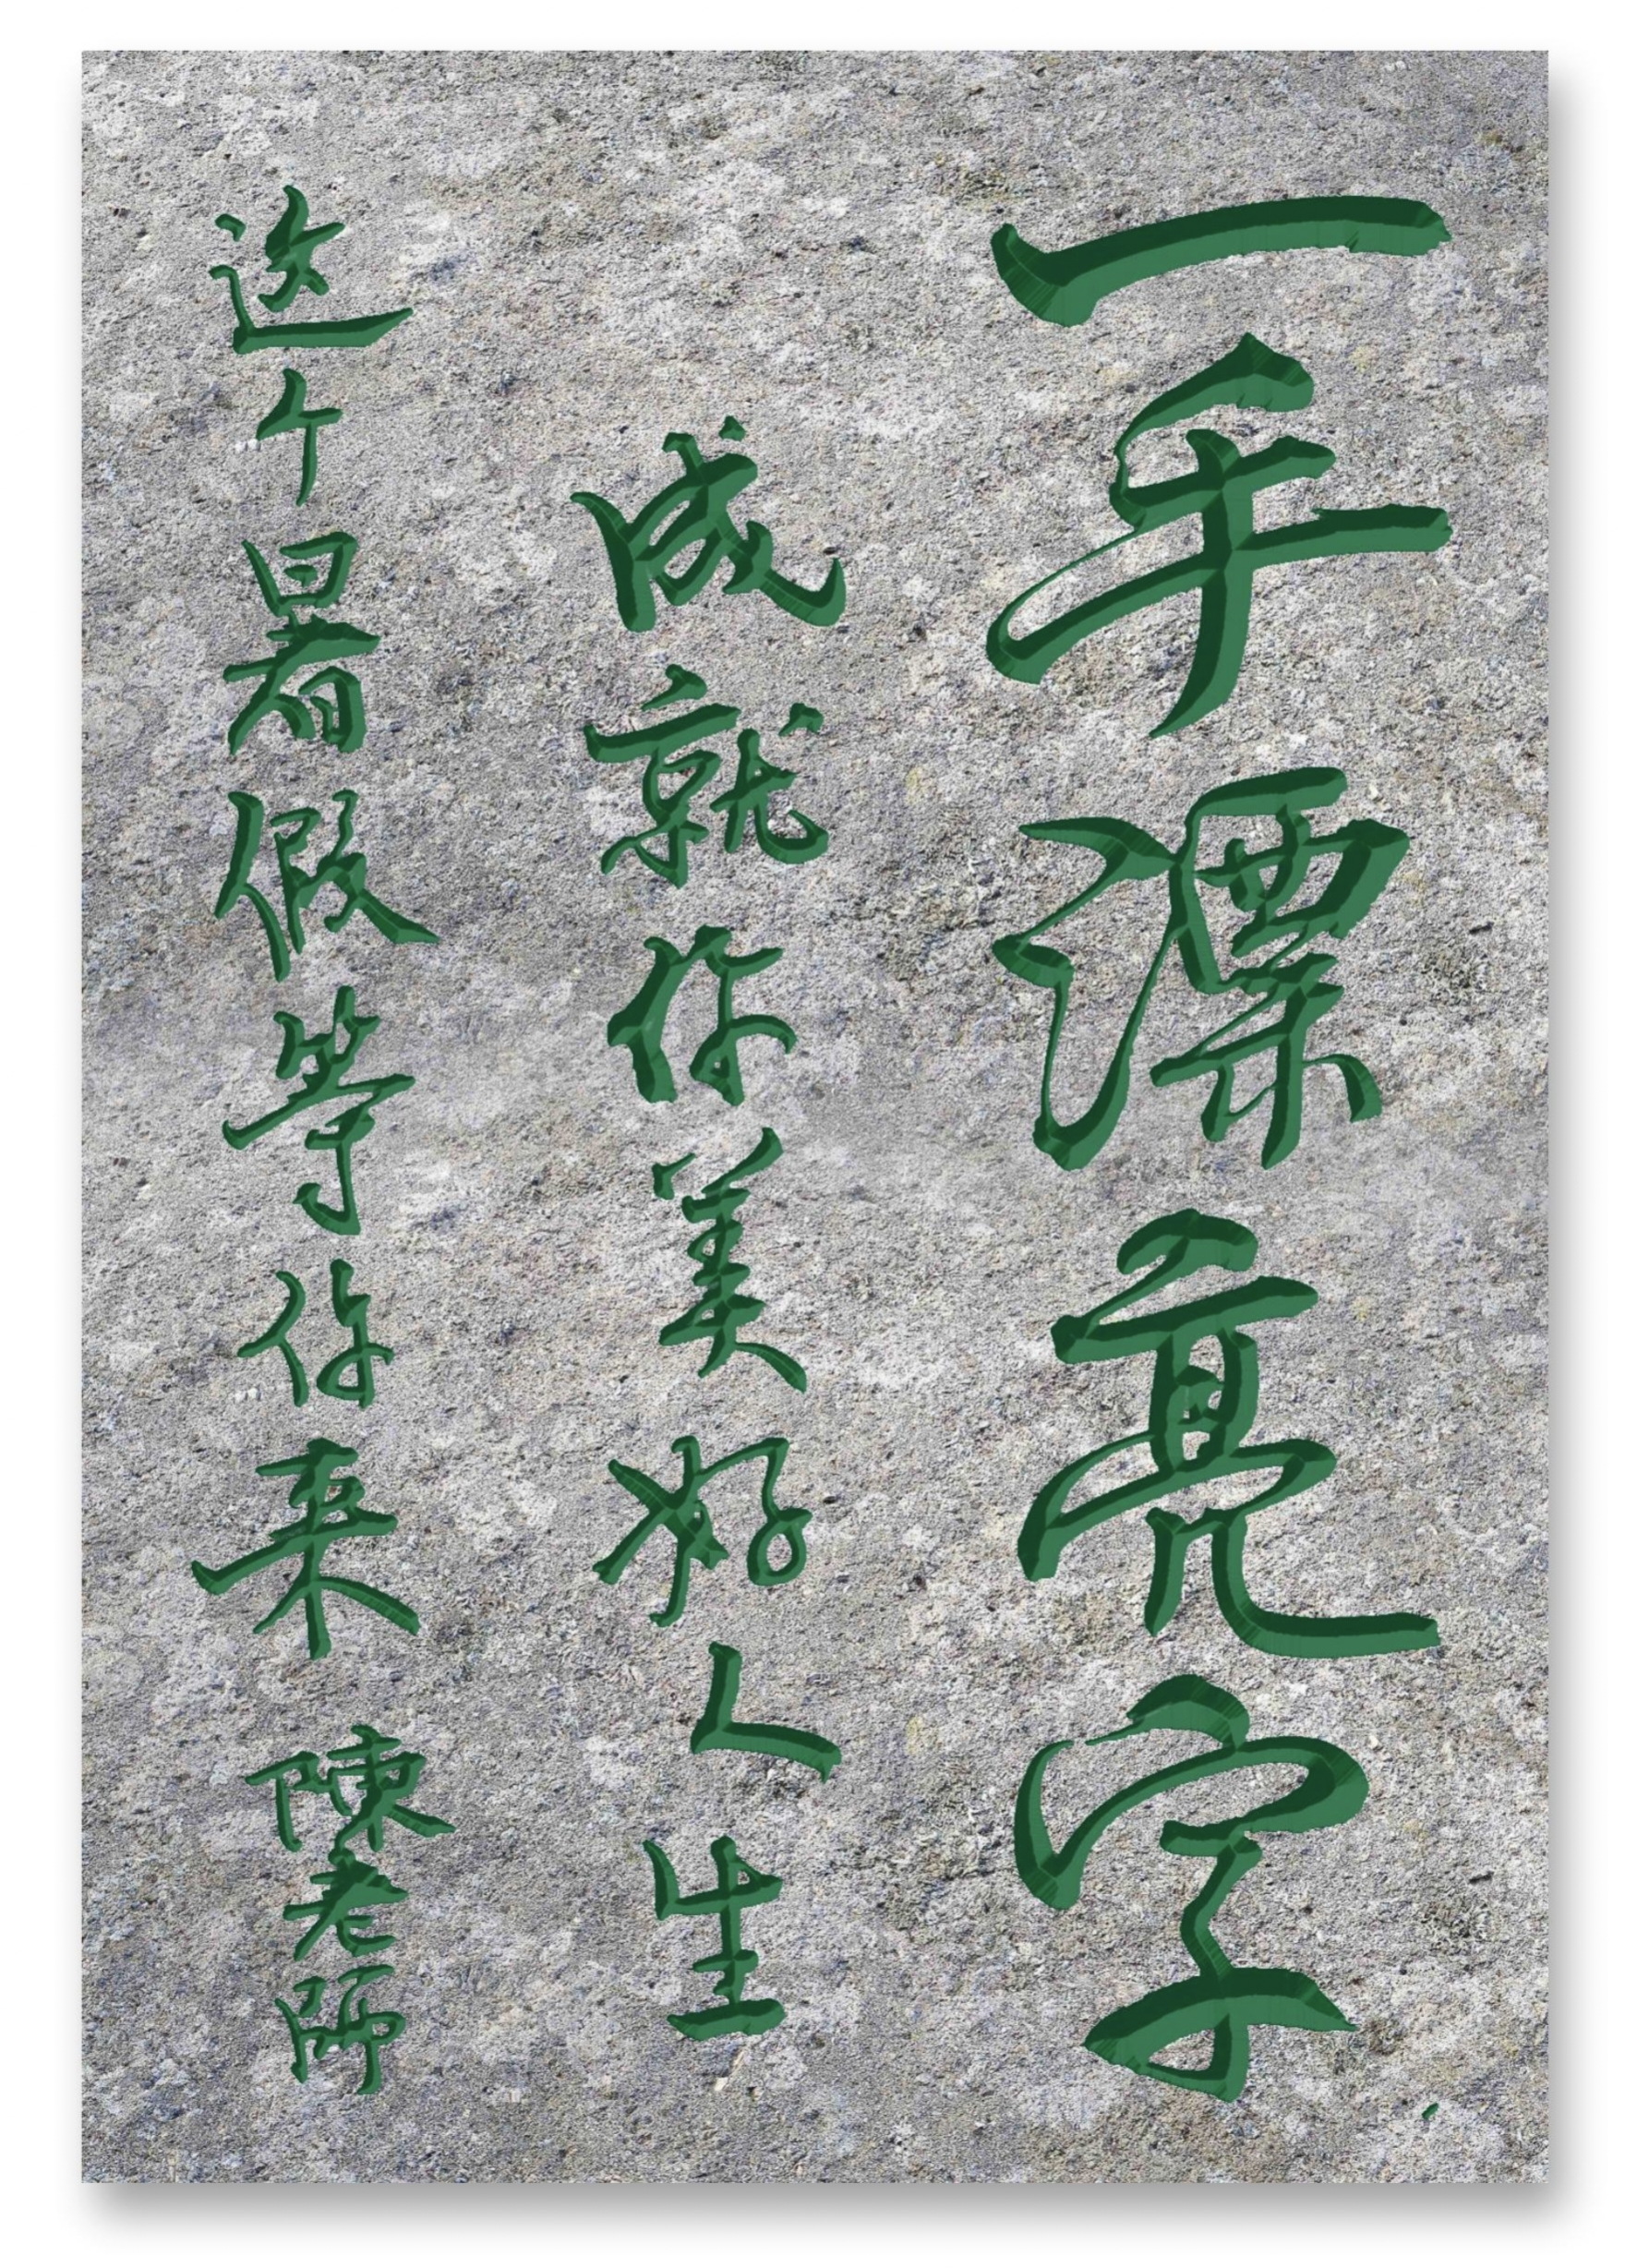 一手漂亮字
成就你美好人生
这个暑假等你来 陳老師